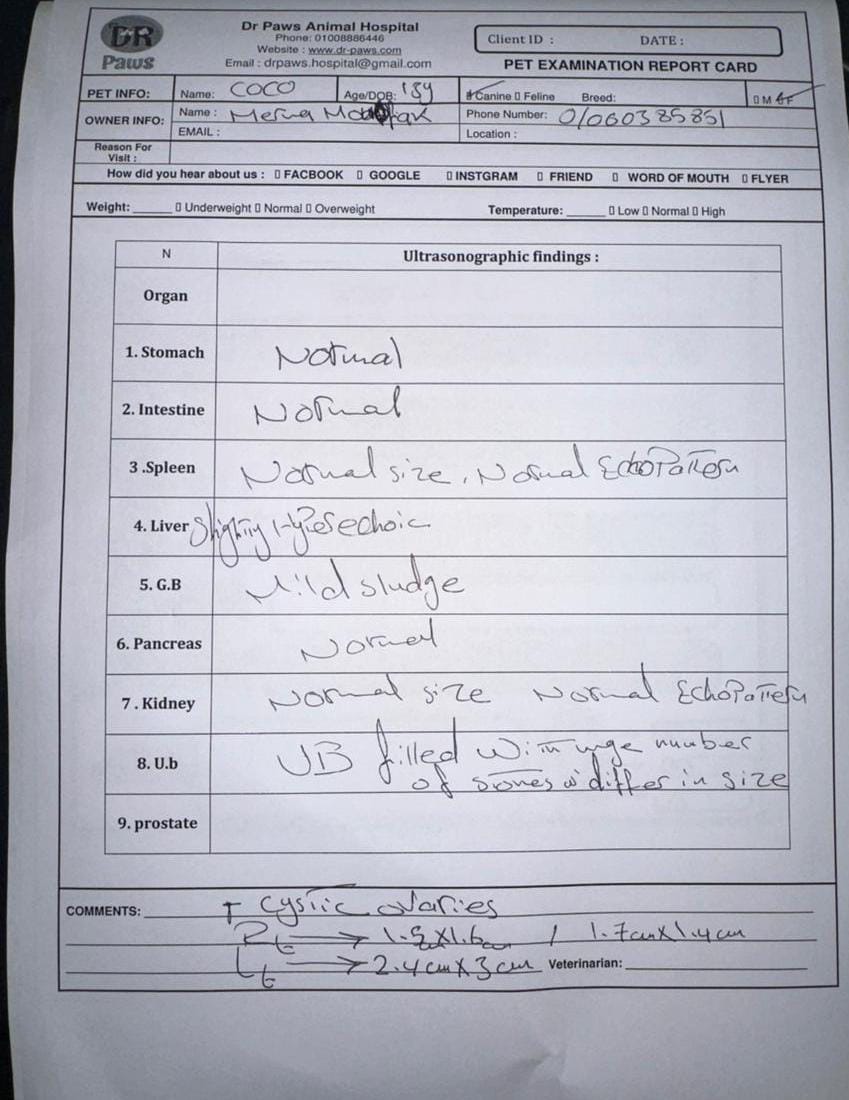 DR
Paws
Dr Paws Animal Hospital
Phone: 01008886446
Website : www.dr-paws.com
Email : drpaws.hospital@gmail.com
Client ID : DATE :
PET EXAMINATION REPORT CARD
PET INFO: Name: COCO Age/DOB: Canine ▯ Feline Breed: ▯ M F
OWNER INFO: Name : Merna Phone Number: 01060385851
EMAIL : Location :
Reason For
Visit :
How did you hear about us : ▯ FACBOOK ▯ GOOGLE ▯ INSTGRAM ▯ FRIEND ▯ WORD OF MOUTH ▯ FLYER
Weight: ______ ▯ Underweight ▯ Normal ▯ Overweight Temperature: ______ ▯ Low ▯ Normal ▯ High
N Ultrasonographic findings :
Organ
1. Stomach Normal
2. Intestine Normal
3 .Spleen Normal size, Normal EchoPattern
4. Liver Slightly Hyperechoic
5. G.B Mild sludge
6. Pancreas Normal
7 . Kidney Normal size Normal EchoPattern
8. U.b UB filled with number
of stones differ in size
9. prostate
COMMENTS: + Cystic ovaries
Rt → / 1.7cm X 1.4cm
Lt → 2.4cm X 3cm Veterinarian: